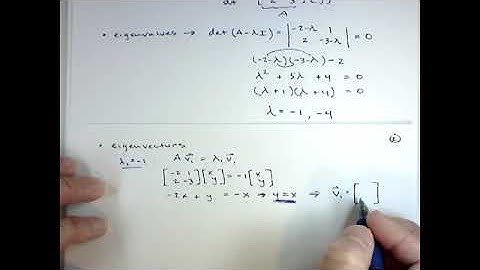 • eigenvalues → det (A - λI) = | -2-λ 1 | = 0
| 2 -3-λ |
(-2-λ)(-3-λ) - 2
λ² + 5λ + 4 = 0
(λ+1)(λ+4) = 0
λ = -1, -4
• eigenvectors
λ₁=-1 A v⃗₁ = λ₁ v⃗₁
[-2 1] [x] = -1 [x]
[2 -3] [y] [y]
-2x + y = -x → y = x ⇒ v⃗₁ = [ ]